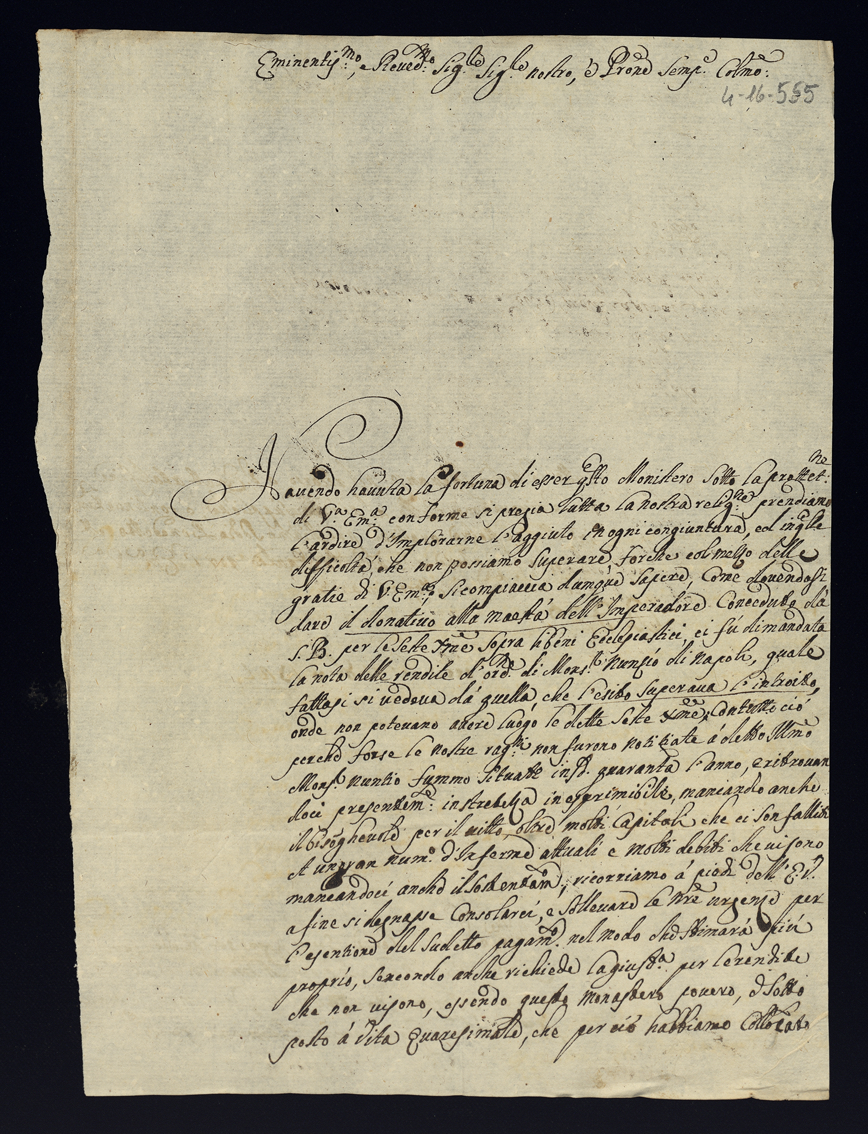 Eminentis.mo, e Reved.mo Sig.re Sig.re nostro, e Prone Semp.e Colmo:
4-16-555
Havendo havuta la fortuna di esser q.sto Monistero sotto la prottet.ne
di V.a Em.a conforme si pregia tutta la nostra relig.ne prendiamo
l'ardire d'Implorarne l'aggiuto in ogni congiuntura, ed in q.lle
difficoltà, che non possiamo superare, forche col mezo delle
gratie di V. Em.a, si compiaccia dunque sapere, Come dovendosi
dare il donativo alla maestà dell'Imperadore Conceduto dà
S. B. per le sette Xme sopra li beni Ecclesiastici, ci fù dimandata
la nota delle rendite d'ord.ne di Mons.r Nunzio di Napoli, quale
fattasi si vedeva dà quella che l'esito superava l'introito,
onde non potevano avere luogo le dette sette Xme, Con tutto ciò
perche forse le nostre rag.ni non furono notitiate à detto Ill.mo
Mons.r Nuntio fummo situate in d. quaranta l'anno, e ritrovan
doci presentem.e in strettezza inesprimibile, mancando anche
il bisognevole per il vitto, oltre, molti Capitali che ci son falliti
A un gran num.o d'Inferme attuali e molti debiti che vi sono
mancandoci anche il sostentam.to, ricorriamo à piedi dell'E.V.
a fine si degnasse Consolarci, e sollevare le nre urgenze per
l'esentione del sudetto pagam.to nel modo che stimarà più
proprio, secondo anche richiede la giust.a per le rendite
che non vi sono, essendo questo Monastero povero, e sotto
posto à vita Quaresimale, che per ciò habbiamo